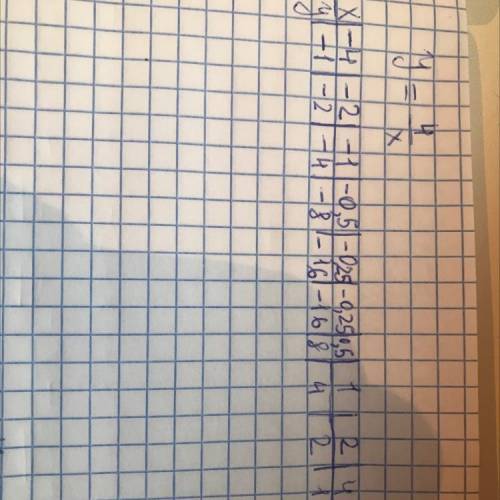 y = 4/x
x | -4 | -2 | -1 | -0,5 | -0,25 | -0,25 | 0,5 | 1 | 2 | 4
y | -1 | -2 | -4 | -8 | -16 | -16 | 8 | 4 | 2 | 1